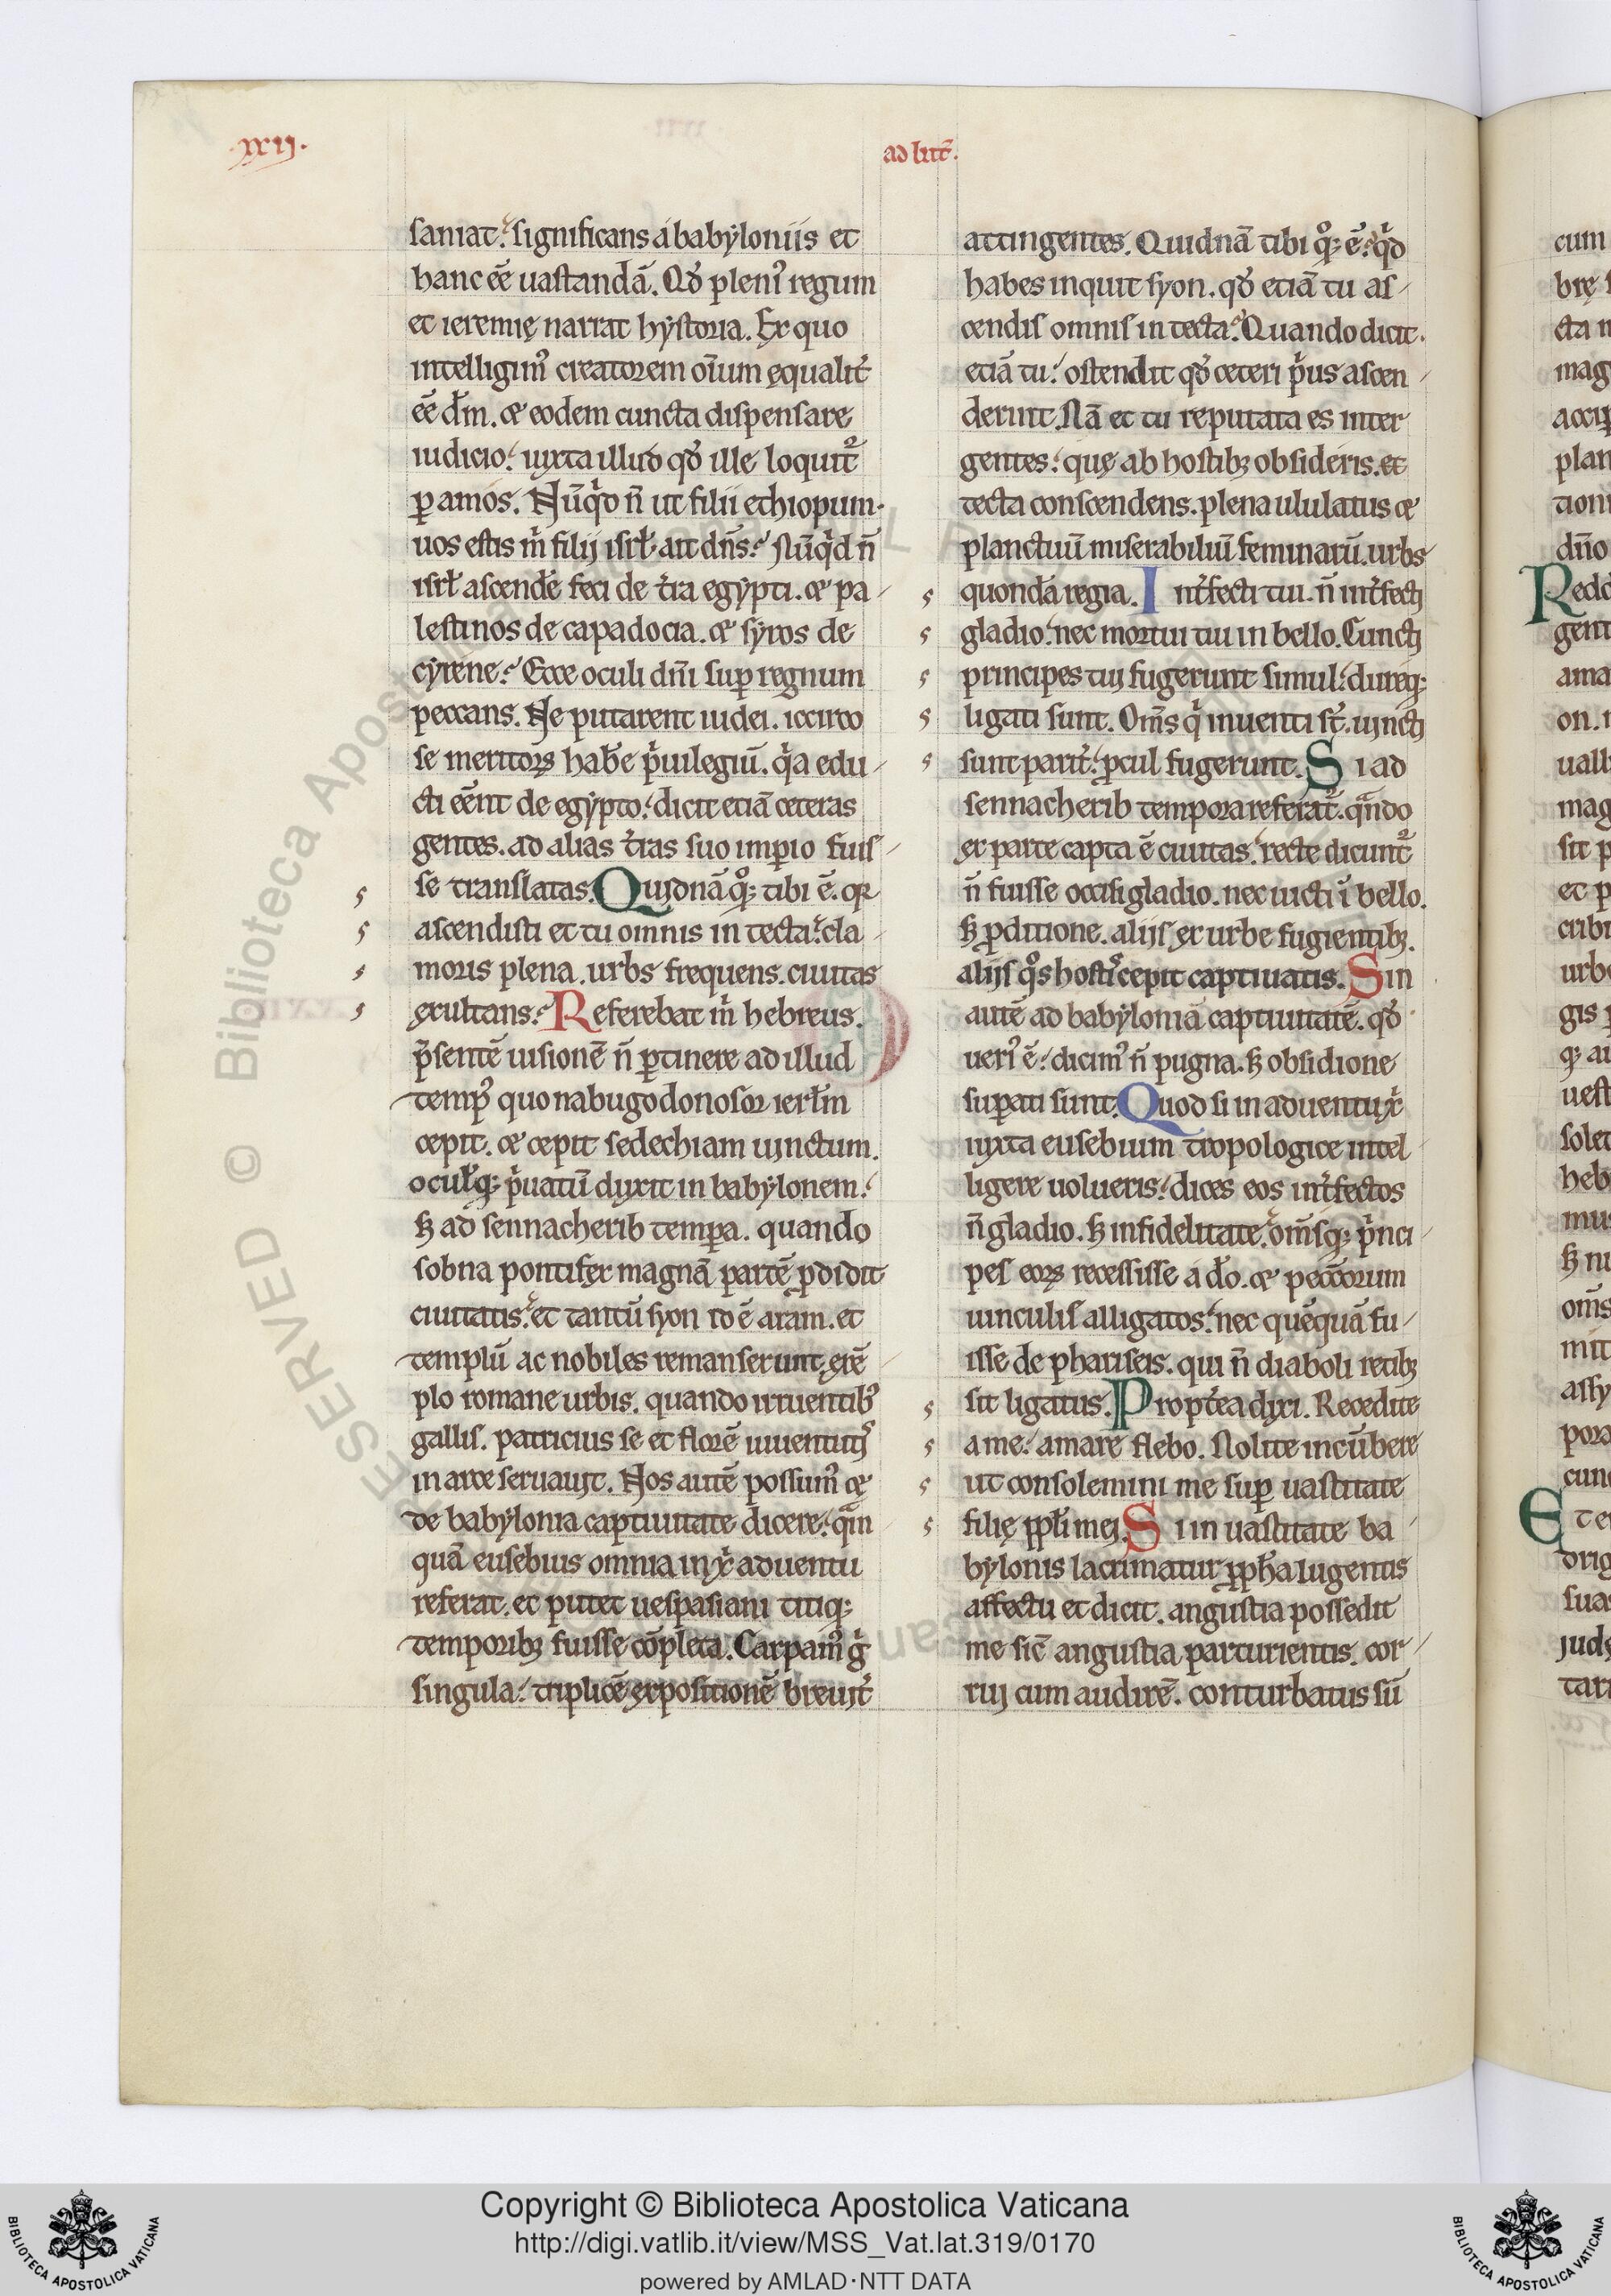 .xxij.
ad litt̄.
saniat. significans a babyloniis et
hanc ēē uastandā. Qd̓ pleni᷒ regum
et ieremię narrat hystoria. Ex quo
intelligim᷒ creatorem om̄ium ęqualit̓
ēē d̄m. & eodem cuncta dispensare
iudicio. iuxta illud qd̓ ille loquit᷑
ꝑ amos. Nūqd̓ n̄ ut filii ethiopum.
uos estis m̓ filij isrł. ait dn̄s? Nūqd̓ n̄
isrł ascende᷑ feci de t̓ra egypti. & pa-
lestinos de capadocia. & syros de
cyrene? Ecce oculi dn̄i suꝑ regnum
peccans. Ne putarent iudei. iccirco
se meritoꝝ habe᷑ p̓uilegiū. q̓a edu-
cti eēnt de egypto. dicit etiā ceteras
gentes. ad alias t̓ras suo imꝑio fuis-
se translatas. Quidnā qͦꝫ tibi ē. qꝛ
ascendisti et tu omnis in tecta? cla-
moris plena. urbs frequens. ciuitas
exultans? Referebat m̓ hebreus.
p̄sentē uisionē n̄ ꝑtinere ad illud
temp᷒ quo nabugodonosor ierłm
cepit. & cepit sedechiam uinctum.
oculꝭqꝫ p̓uatū duxit in babylonem.
sꝫ ad sennacherib temꝑa. quando
sobna pontifex magnā partē ꝑdidit
ciuitatis. et tantū syon id ē aram. et
templū ac nobiles remanserunt. exē-
plo romane urbis. quando irruentib᷒
gallis. patricius se et florē iuuentutꝭ
in arce seruauit. Nos autē possum᷒ &
de babylonia captiuitate dicere. qm̄-
quā eusebius omnia in xp̄i aduentu
referat. et putet uespasiani titiqꝫ
temporibꝫ fuisse cōpleta. Carpam᷒ g̓
singula. triplicē expositionē breuit̓
attingentes. Quidnā tibi qͦꝫ ē. q̓d
habes inquit syon. qd̓ etiā tu as-
cendis omnis in tecta? Quando dicit.
etiā tu. ostendit qd̓ ceteri p̓us ascen-
derint. Nā et tu reputata es inter
gentes. quę ab hostibꝫ obsideris. et
tecta conscendens. plena ululatus &
planctuū miserabiliū feminarū. urbs
quondā regia. Int̓fecti tui. n̄ int̓fecti
gladio. nec mortui tui in bello. Cuncti
principes tui fugerunt simul. dureqꝫ
ligati sunt. Om̄s q̓ inuenti st̄. uincti
sunt parit̓. ꝓcul fugerunt. Si ad
sennacherib tempora referat᷑. qn̄do
ex parte capta ē ciuitas. recte dicunt᷑
n̄ fuisse occisi gladio. nec uicti ī bello.
sꝫ ꝑditione. alijs ex urbe fugientibꝫ.
alijs qͦs hostis cepit captiuatis. Sin
autē ad babyloniā captiuitatē. qd̓
ueri᷒ ē. dicim᷒ n̄ pugna. sꝫ obsidione
suꝑati sunt. Quod si in aduentu xp̄i
iuxta eusebium tropologice intel-
ligere uolueris. dices eos int̓fectos
n̄ gladio. sꝫ infidelitate. om̄sqꝫ p̓nci-
pes eoꝝ recessisse a dō. & pecc̄orum
uinculis alligatos. nec quēquā fu-
isse de phariseis. qui n̄ diaboli retibꝫ
sit ligatus. Propt̓ea dixi. Recedite
a me. amare flebo. Nolite incūbere
ut consolemini me suꝑ uastitate
filię ppłi mei. Si in uastitate ba-
bylonis lacrimatur ꝓph̄a lugentis
affectu et dicit. angustia possedit
me sic̄ angustia parturientis. cor-
rui cum audirē. conturbatus sū
cum
brę
cta
mag
accip
plan
tion
dn̄o
Redd
gent
ama
on.
uall
mag
sit
ec
cubi
urb
gis
qꝫ
uest
solet
heb
mus
sꝫ
om̄s
mit
assy
pora
cun
Et
orig
suas
jude
tar
Copyright © Biblioteca Apostolica Vaticana
http://digi.vatlib.it/view/MSS_Vat.lat.319/0170
powered by AMLAD·NTT DATA
BIBLIOTECA APOSTOLICA VATICANA
BIBLIOTECA APOSTOLICA VATICANA